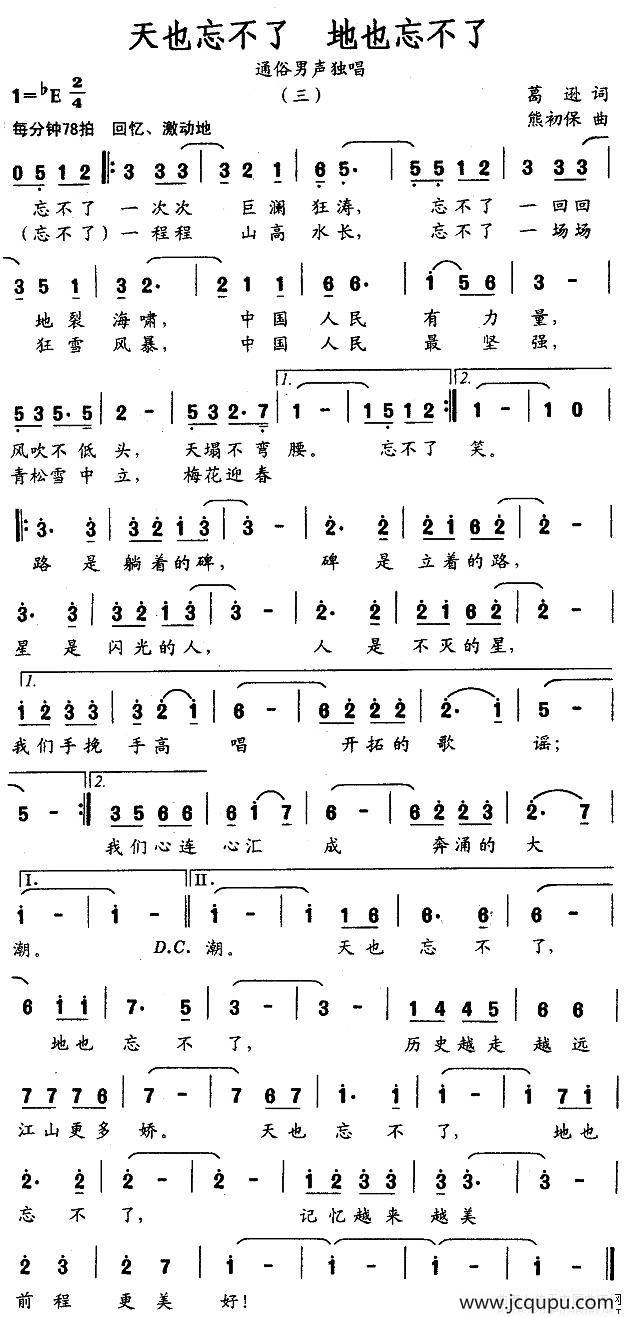 天也忘不了 地也忘不了
通俗男声独唱
(三)
1=♭E 2/4
葛逊 词
每分钟78拍 回忆、激动地
熊初保 曲
0 5 1 2 ‖: 3 3 3 | 3 2 1 | 6 5· | 5 5 1 2 | 3 3 3 |
忘不了 一次次 巨澜 狂涛, 忘不了 一回回
(忘不了)一程程 山高 水长, 忘不了 一场场
3 5 1 | 3 2· | 2 1 1 | 6 6· | i 5 6 | 3 - |
地裂 海啸, 中国 人民 有力量,
狂雪 风暴, 中国 人民 最坚强,
1. 2.
5 3 5· 5 | 2 - | 5 3 2· 7 | 1 - | 1 5 1 2 :‖ 1 - | 1 0
风吹不低头, 天塌不弯腰。 忘不了 笑。
青松雪中立, 梅花迎春
‖: 3· 3 | 3 2 i 3 | 3 - | 2· 2 | 2 i 6 2 | 2 - |
路是躺着的碑, 碑是立着的路,
3· 3 | 3 2 i 3 | 3 - | 2· 2 | 2 i 6 2 | 2 - |
星是闪光的人, 人是不灭的星,
1.
i 2 3 3 | 3 2 i | 6 - | 6 2 2 2 | 2· i | 5 - |
我们手挽手高唱 开拓的歌谣;
2.
5 - :‖ 3 5 6 6 | 6 i 7 | 6 - | 6 2 2 3 | 2· 7 |
我们心连心汇成 奔涌的大
I. II.
i - | i - ‖ i - | i - | 1 6 | 6· 6 | 6 - |
潮。 D.C. 潮。 天也忘不了,
6 i i | 7· 5 | 3 - | 3 - | 1 4 4 5 | 6 6 |
地也忘不了, 历史越走越远
7 7 7 6 | 7 - | 7 6 7 | i· i | i - | i 7 i |
江山更多娇。 天也忘不了, 地也
2· 2 | 2 - | 2 - | i 2 3 3 | 3 3· | 3 - |
忘不了, 记忆越来越美
2 3 | 2· 7 | i - | i - | i - | i - ‖
前程更美好!
www.jcqupu.com